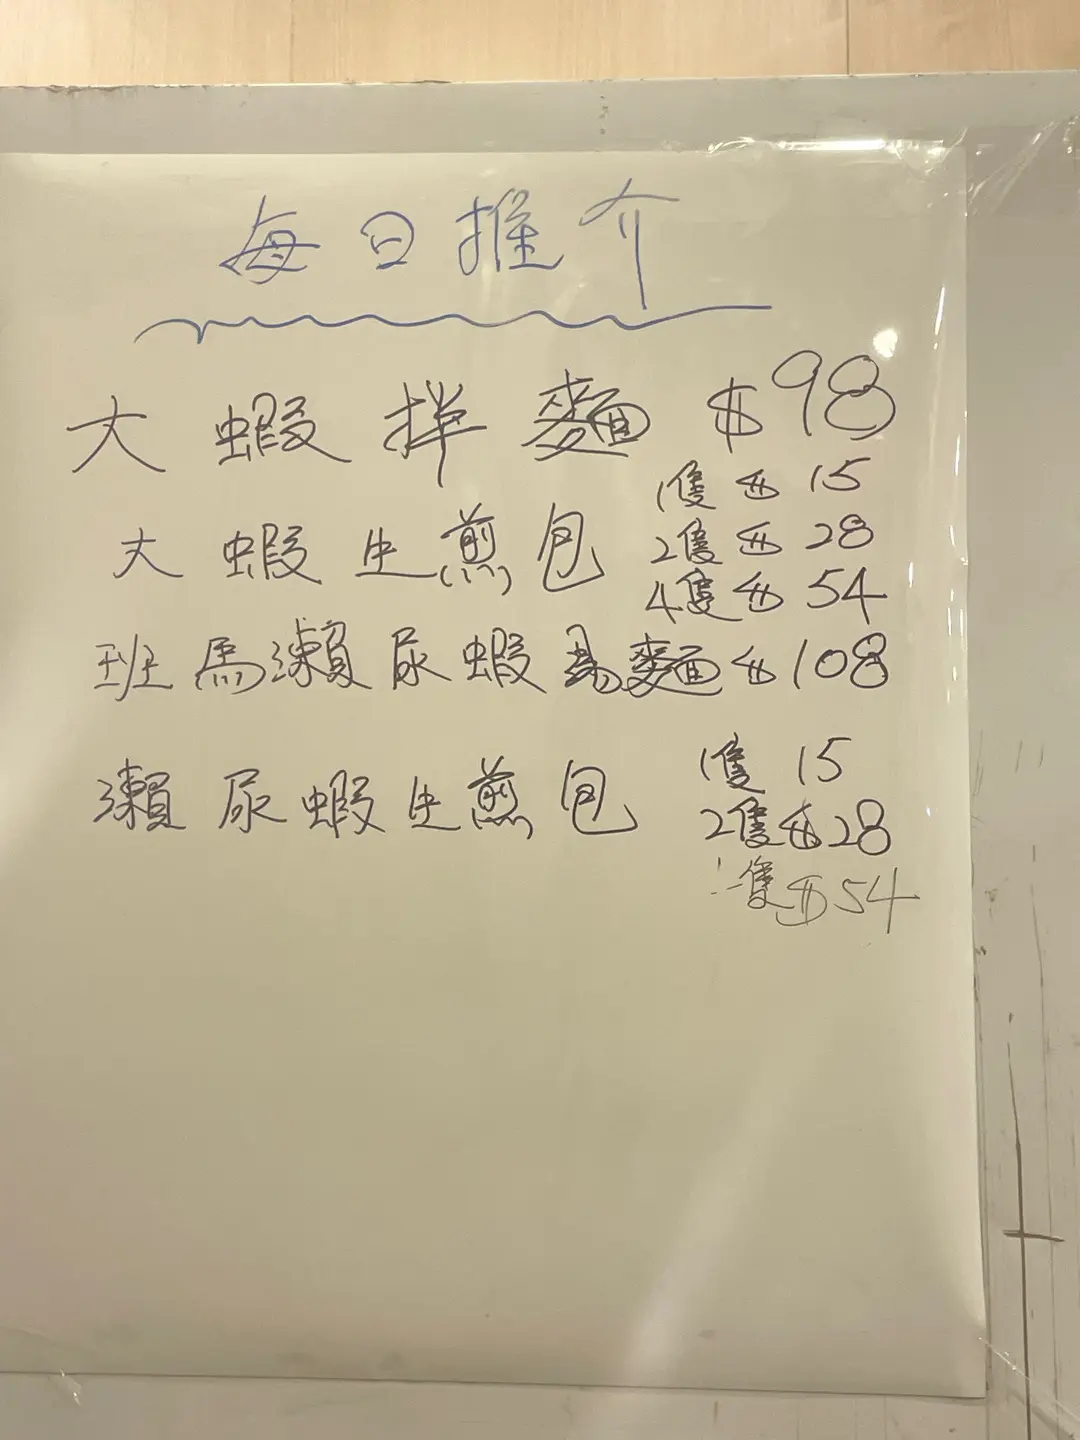 每日推介
大蝦拌麵 $98
大蝦生煎包 1隻 $15
2隻 $28
4隻 $54
班馬瀨尿蝦湯麵 $108
瀨尿蝦生煎包 1隻 15
2隻 $28
隻 $54